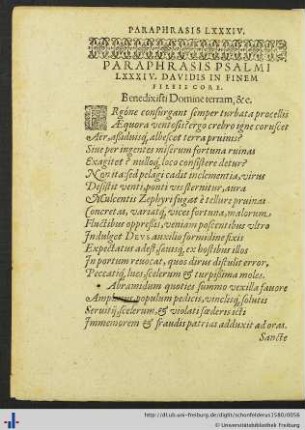 PARAPHRASIS LXXXIV.
PARAPHRASIS PSALMI
LXXXIV. DAVIDIS IN FINEM
FILIIS CORE.
Benedixisti Domine terram, &c.
ERgóne consurgant semper turbata procellis
Æquora ventosis? ergo crebro igne coruscet
Aer, assiduisq́, albescet terra pruinis?
Siue per ingentes miserum fortuna ruinas
Exagitet? nulloq́, loco consistere detur?
Non ita: sed pelagi cadit inclementia, virus
Desistit venti, ponti vis sternitur, aura
Mulcentis Zephyri fugat è tellure pruinas
Concretas, variatq́, vices fortuna, malorum
Fluctibus oppressis, veniam poscentibus vltro
Indulget DEVS auxilio formidine fixis
Expectatus adest, sauisq́, ex hostibus illos
In portum reuocat, quos dirus distulit error,
Peccatiq́, lues, scelerum & turpissima moles.
Abramidum quoties summo vexilla fauore
populum pedicis, vinclisq́, solutis
Seruitij, scelerum, & violati fœderis icti
Immemorem & fraudis patrias adduxit ad oras.
Sancte
http://dl.ub.uni-freiburg.de/diglit/schonfelderus1580/0058
© Universitätsbibliothek Freiburg